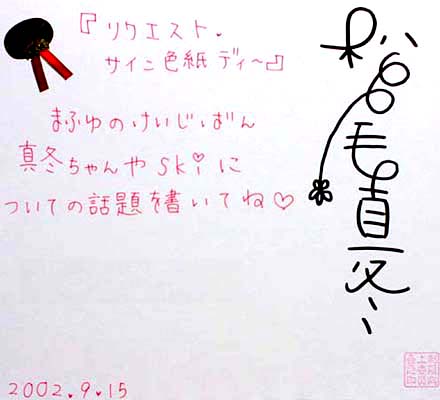 『リクエスト・
サイン色紙 ディ〜』
まふゆのけいじばん
真冬ちゃんや skiに
ついての話題を書いてね♡
毛真冬
2002.9.15